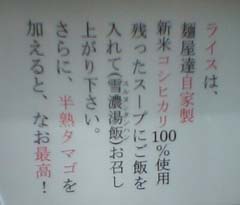 ライスは、
麺屋達自家製
新米コシヒカリ100%使用
残ったスープにご飯を
入れて(雪濃湯飯)お召し
上がり下さい。
さらに、半熟タマゴを
加えると、なお最高!